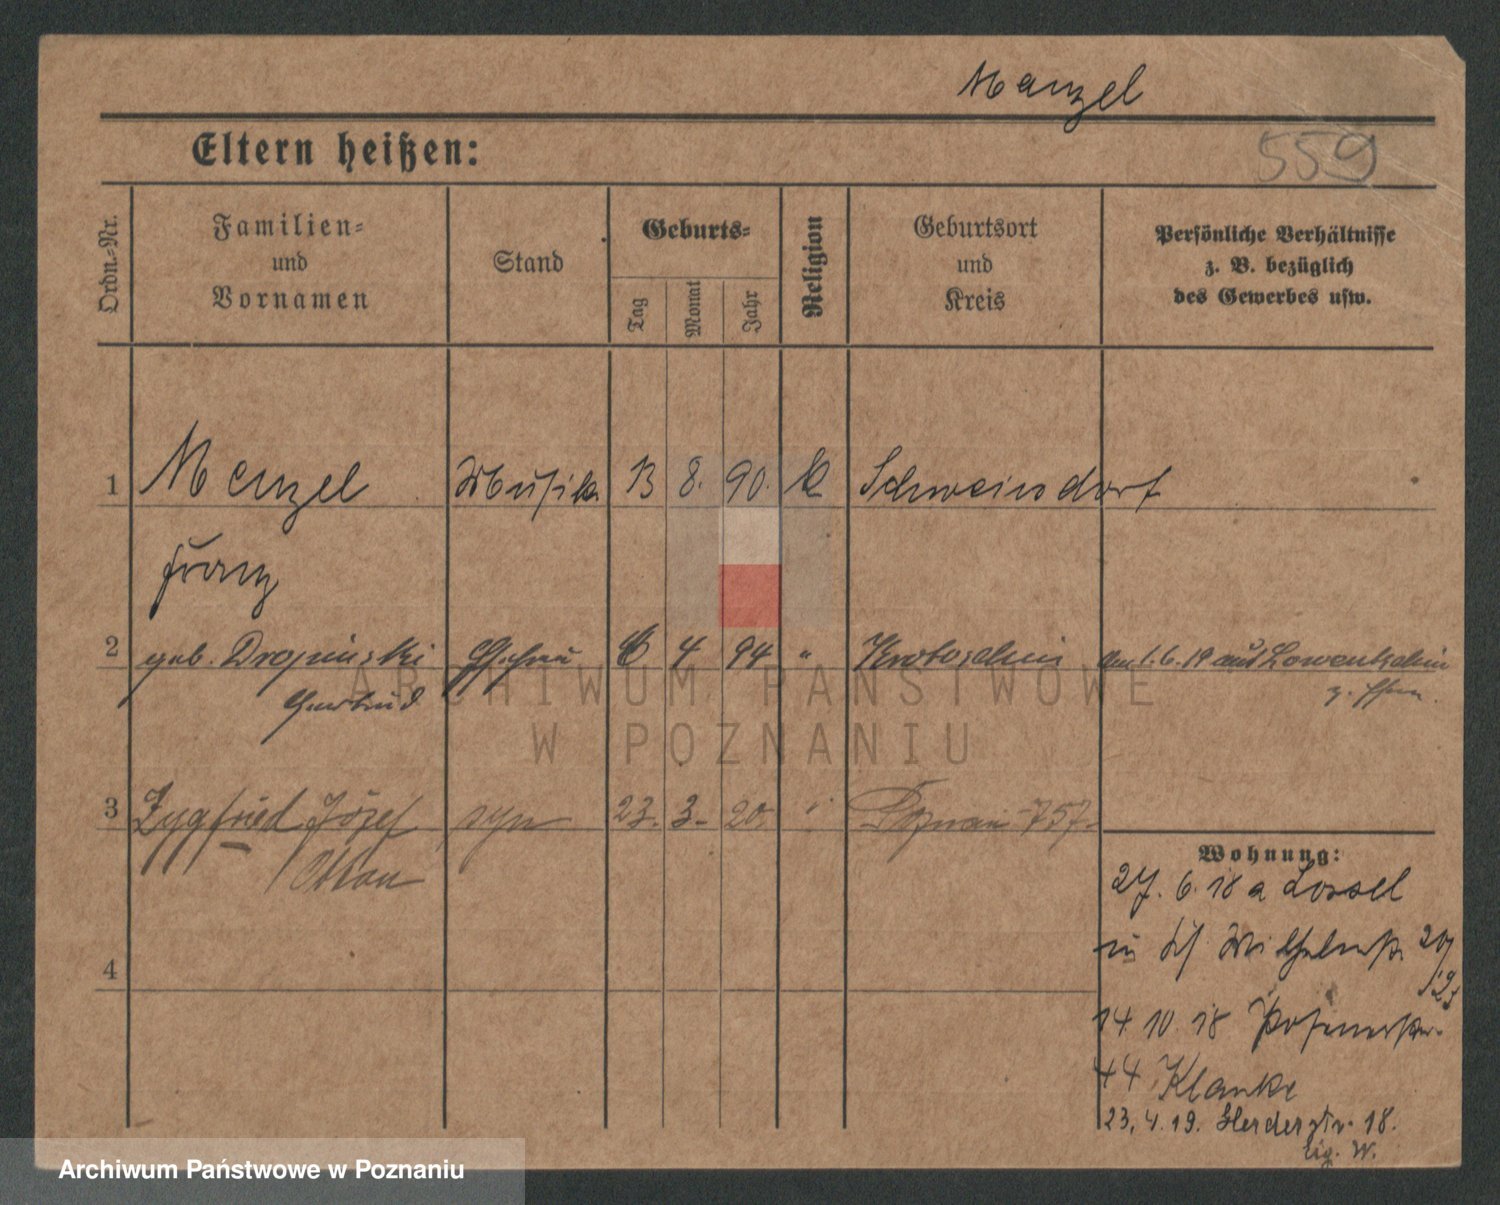 Menzel
559
Eltern heißen:
Ordn.-Nr.
Familien-
und
Vornamen
Stand
Geburts-
Tag
Monat
Jahr
Religion
Geburtsort
und
Kreis
Persönliche Verhältnisse
z. B. bezüglich
des Gewerbes usw.
1 Menzel Musik 13 8. 90. K Schweinsdorf
Franz
2 geb. Dropinski Ehefrau 6 4 94 " Krotoschin am 1.6.19 aus
Gertrud
z. Ehem.
ARCHIWUM PAŃSTWOWE
W POZNANIU
3 Zygfried Józef syn 23. 3. 20. " Poznań 757
Wohnung:
27. 6. 18 a Lossel
in Wilhelmstr. 20/
/23
4
14 10 18 Posenerstr.
44 Klanke
23. 4. 19. Herderstr. 18.
eig. W.
Archiwum Państwowe w Poznaniu